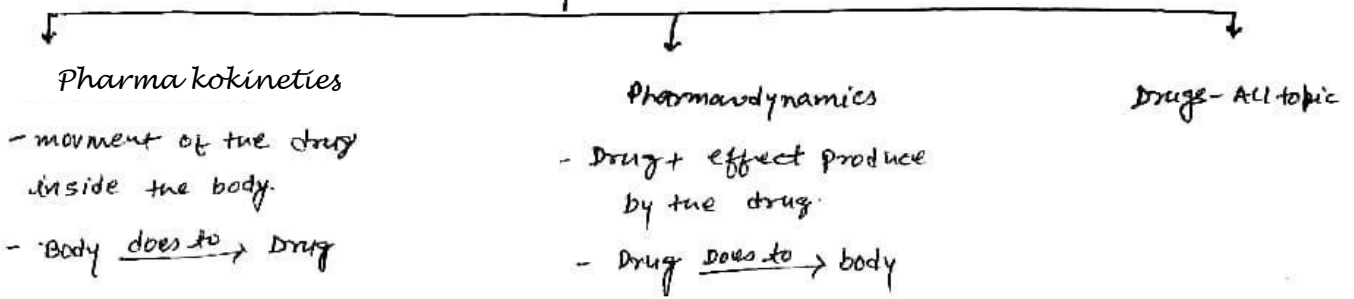 Pharma kokineties
- movment of the drug
inside the body.
- Body does to → Drug
Pharmawdynamics
- Drug + effect produce
by the drug.
- Drug Does to → body
Drugs - All topic